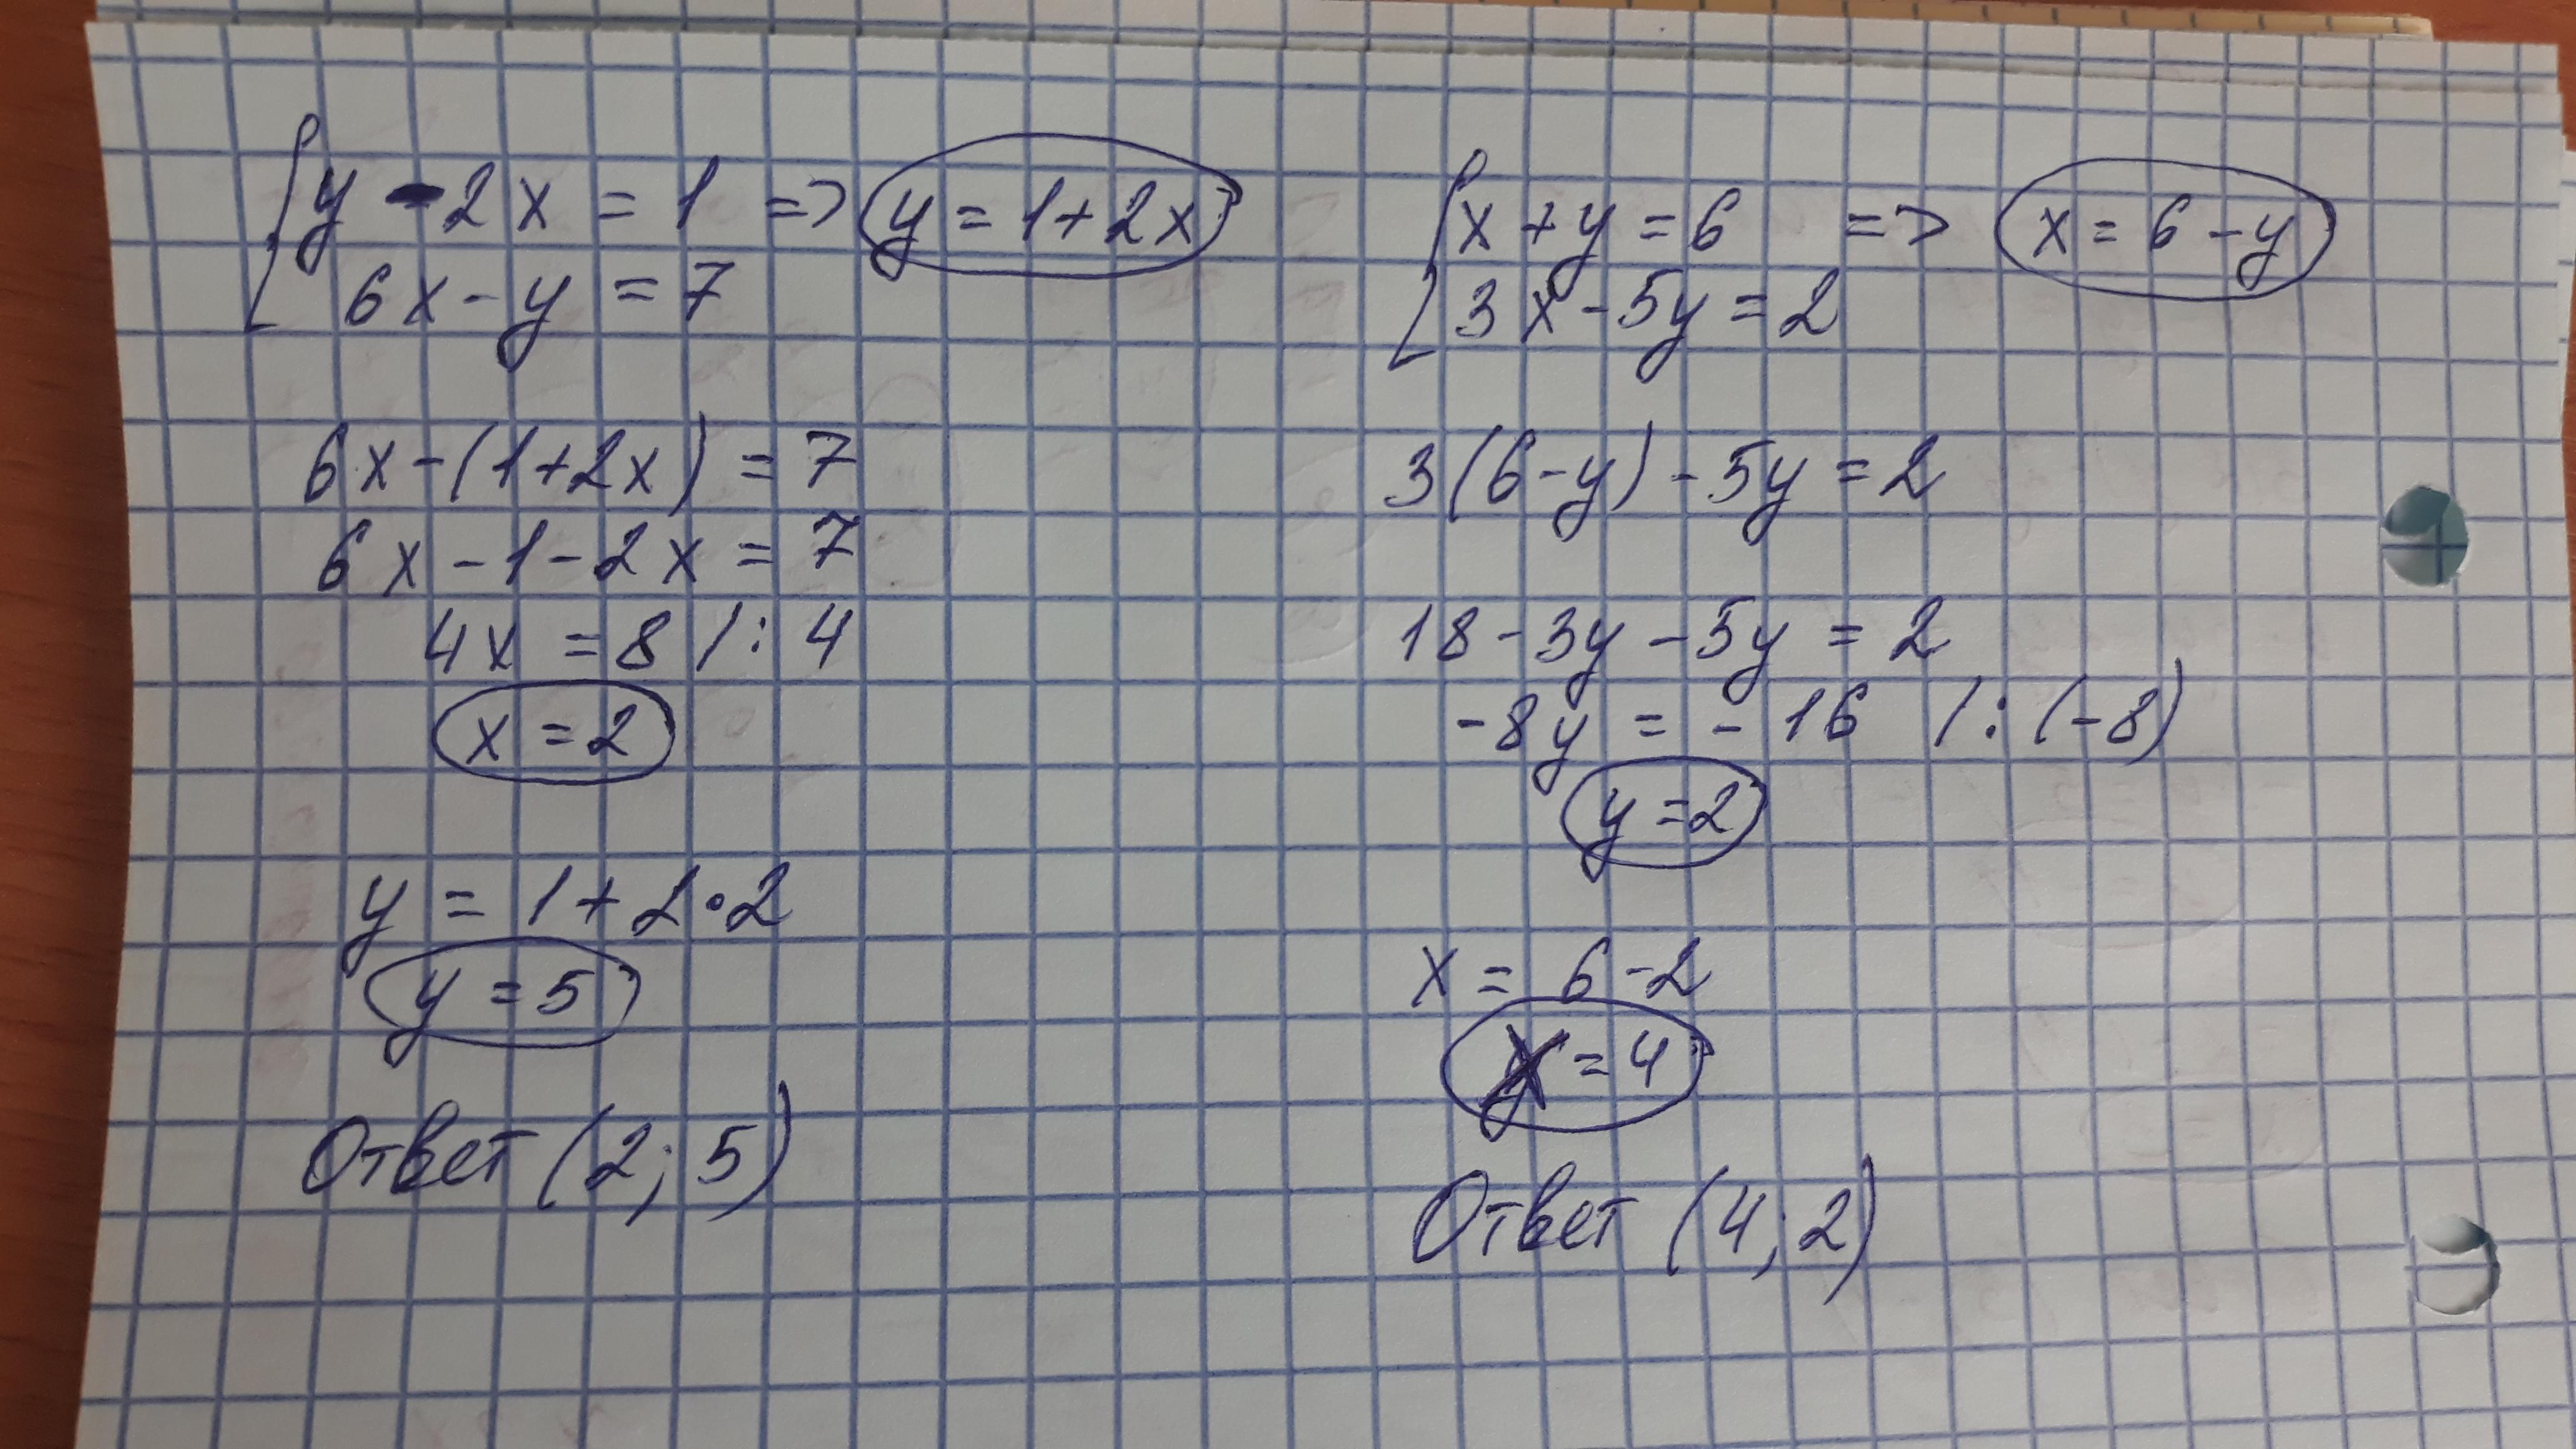 y - 2x = 1 => y = 1 + 2x
6x - y = 7
6x - (1 + 2x) = 7
6x - 1 - 2x = 7
4x = 8 / : 4
x = 2
y = 1 + 2 • 2
y = 5
Ответ (2; 5)
x + y = 6 => x = 6 - y
3x - 5y = 2
3(6 - y) - 5y = 2
18 - 3y - 5y = 2
-8y = -16 / : (-8)
y = 2
x = 6 - 2
x = 4
Ответ (4; 2)